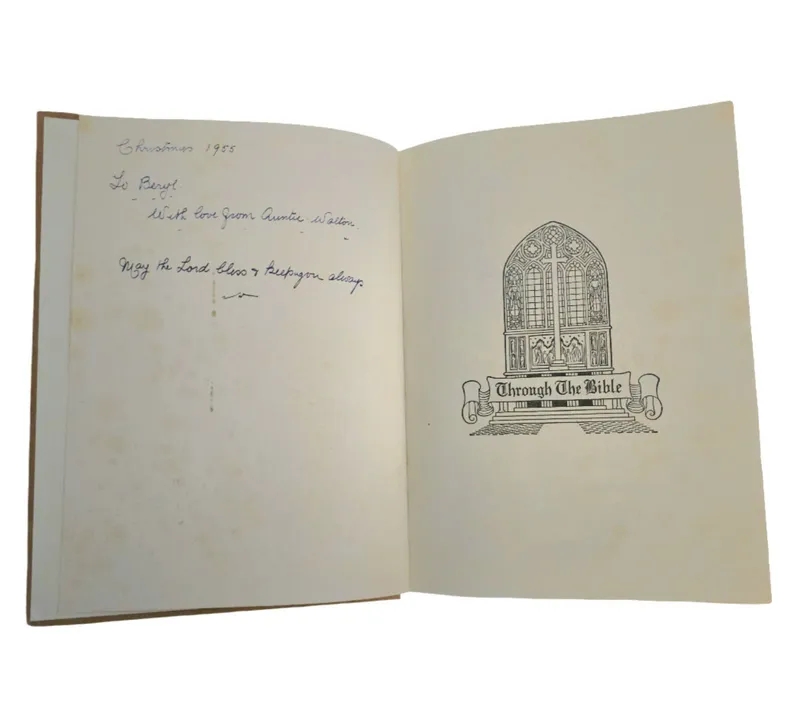 Christmas 1955
To Beryl.
With love from Auntie Walton.
May the Lord bless & Keep you always
Through The Bible